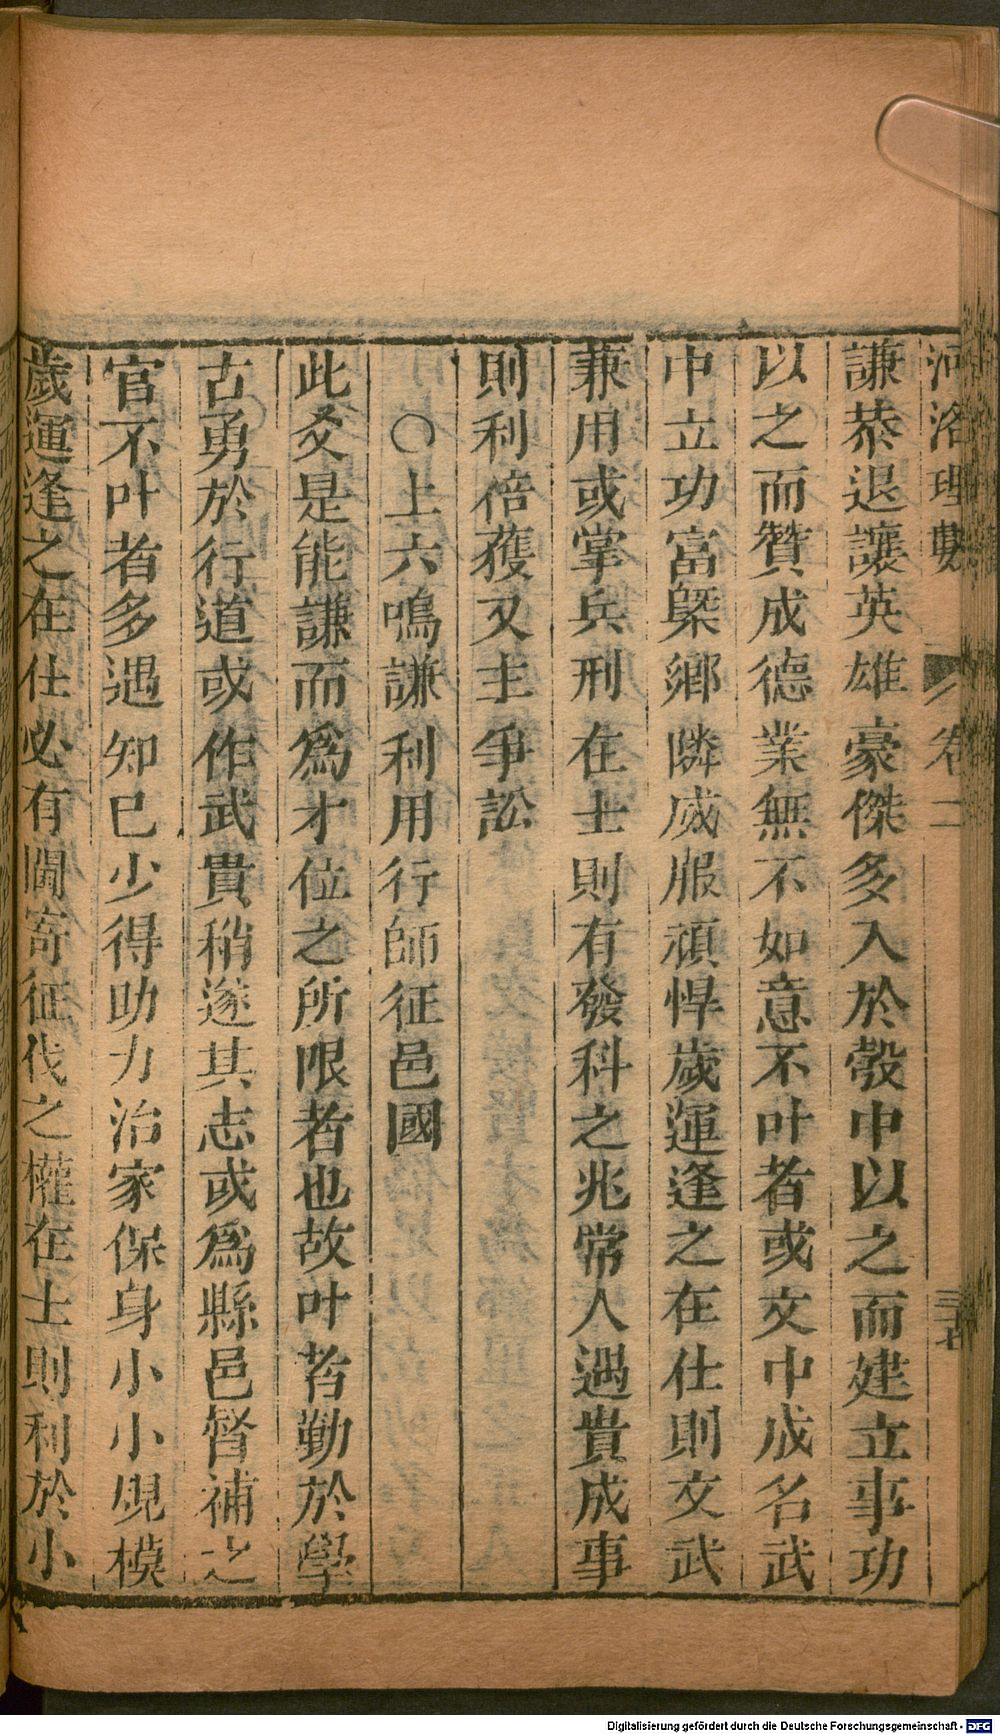 河洛理數 卷二 三十七
謙恭退讓英雄豪傑多入於彀中以之而建立事功
以之而贊成德業無不如意不叶者或文中成名武
中立功富槩鄉隣威服頑悍歲運逢之在仕則文武
兼用或掌兵刑在士則有發科之兆常人遇貴成事
則利倍獲又主爭訟
○上六鳴謙利用行師征邑國
此爻是能謙而爲才位之所限者也故叶者勤於學
古勇於行道或作武貴稍遂其志或爲縣邑督補之
官不叶者多遇知巳少得助力治家保身小小規模
歲運逢之在仕必有閫寄征伐之權在士則利於小
Digitalisierung gefördert durch die Deutsche Forschungsgemeinschaft - DFG